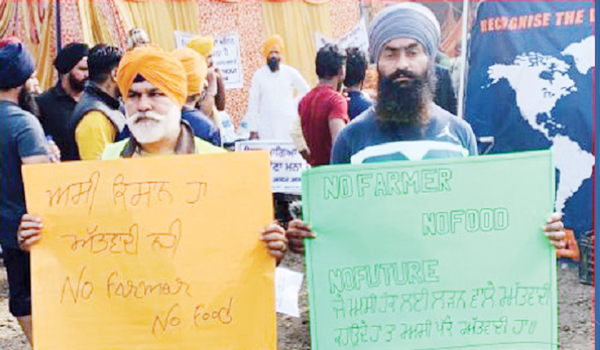 RECOGNISE THE
ਅਸੀ ਕਿਸਾਨ ਹਾ
ਅੱਤਵਾਦੀ ਨਹੀ
No Farmer
No Food
NO FARMER
NOFOOD
NOFUTURE
ਜੇ ਅਸੀ ਹੱਕ ਲਈ ਲੜਨ ਵਾਲੇ ਅੱਤਵਾਦੀ
ਅਸੀ ਪੱਕੇ ਅੱਤਵਾਦੀ ਹਾ॥